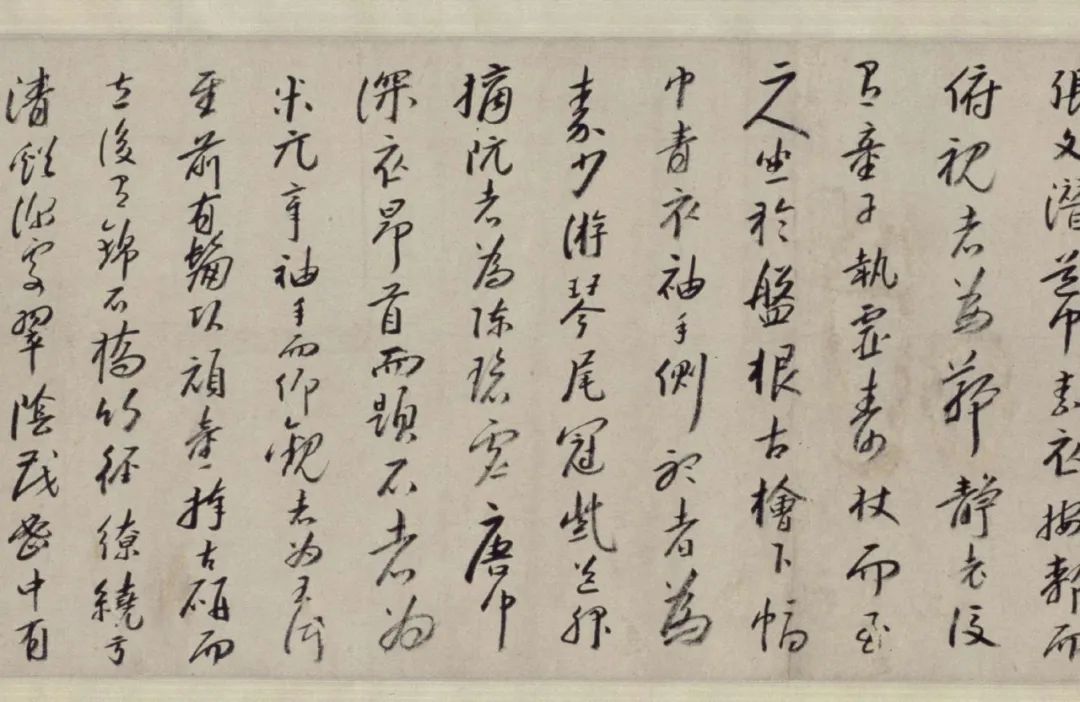 張文潛道巾素衣按膝而
俯視者為鄭靜老後
有童子執靈壽杖而立
二人坐於盤根古檜下幅
巾青衣袖手側聽者為
秦少游琴尾冠紫道服
摘阮者為陳碧虛唐巾
深衣昂首而題石者為
米元章袖手而仰觀者为王仲
至前有鬅頭頑童捧古硯而
立後有錦石橋竹徑繚繞于
清谿深處翠陰茂密中有